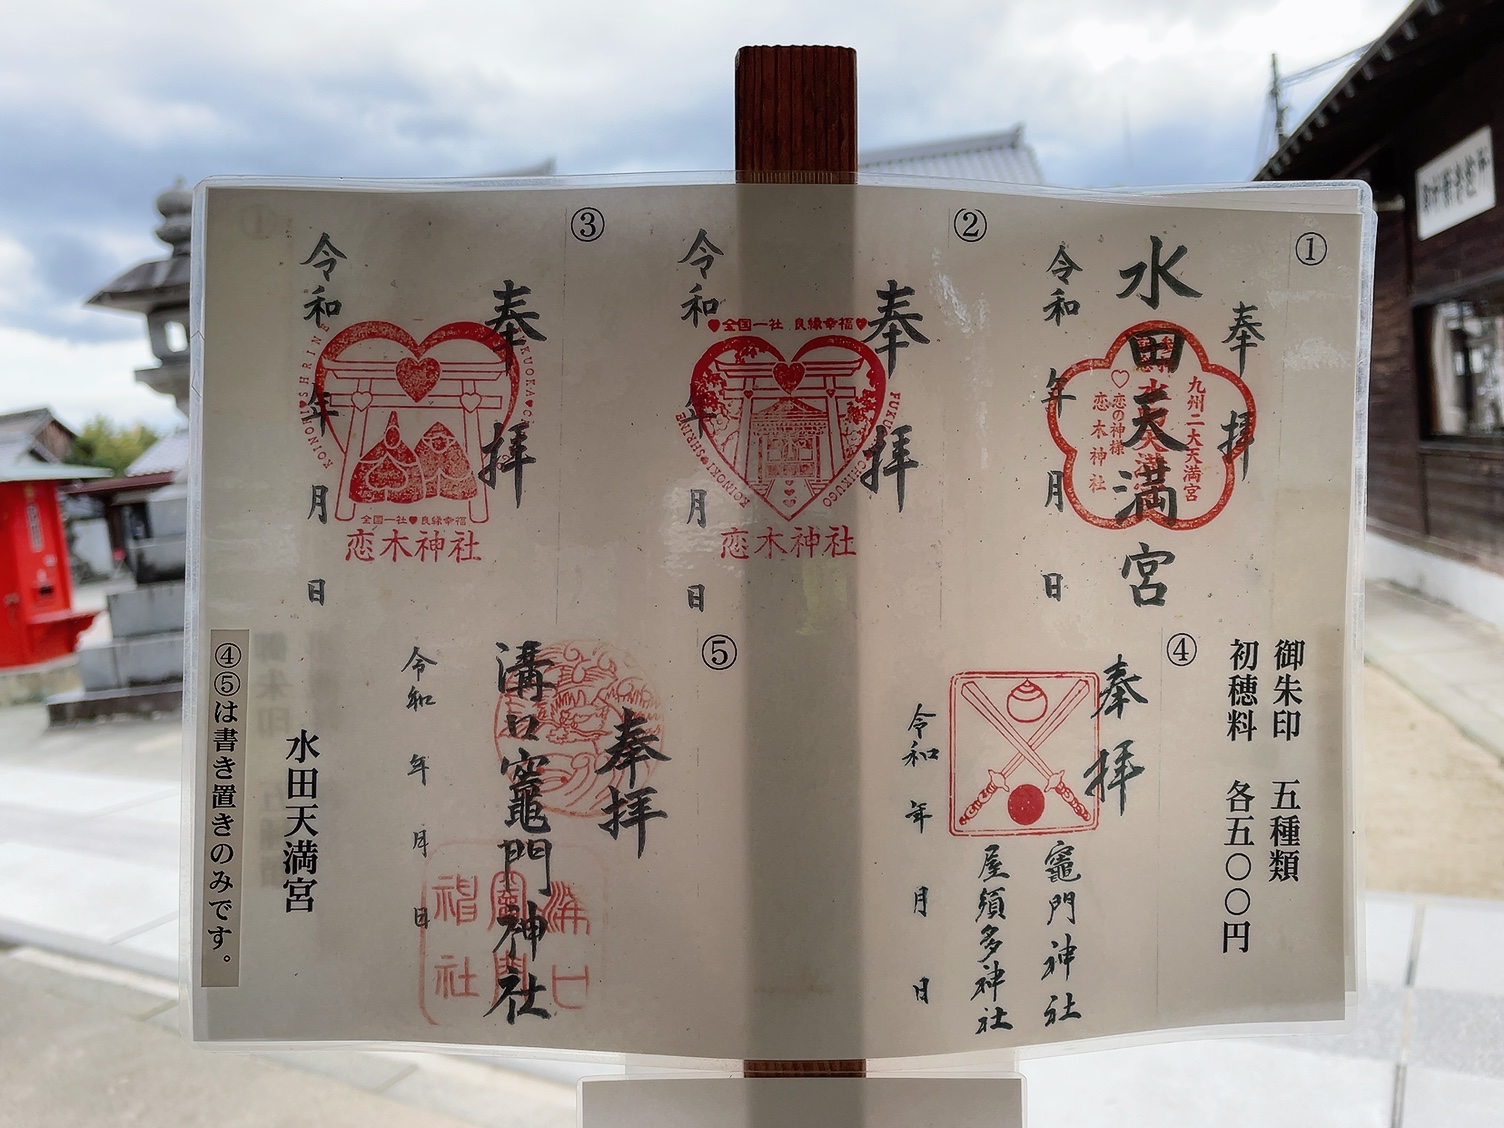 ①
奉拝
水田天満宮
九州二大天満宮
恋の神様
恋木神社
令和 年 月 日
②
奉拝
全国一社 良縁幸福
KOINOKI SHRINE
恋木神社
令和 年 月 日
③
奉拝
KOINOKI SHRINE
全国一社 良縁幸福
恋木神社
令和 年 月 日
御朱印 五種類
初穂料 各五〇〇円
④
奉拝
竈門神社
屋須多神社
令和 年 月 日
⑤
奉拝
溝口竈門神社
令和 年 月 日
水田天満宮
④⑤は書き置きのみです。